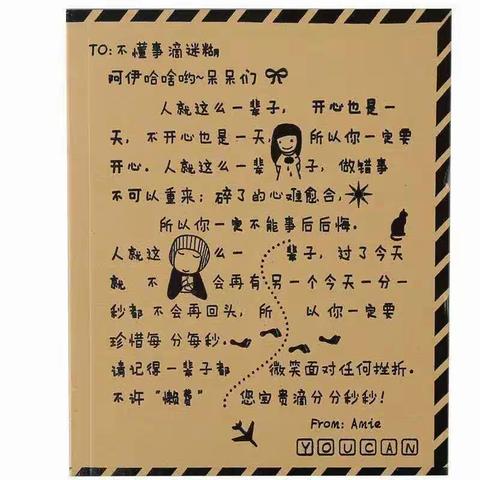 TO: 不懂事滴迷糊
阿伊哈啥哟~呆呆们
人就这么一辈子, 开心也是一
天, 不开心也是一天, 所以你一定要
开心。人就这么一辈子, 做错事
不可以重来; 碎了的心难愈合,
所以你一定不能事后后悔。
人就这么一 辈子, 过了今天
就 不 会再有另一个今天一分一
秒都 不会再回头, 所 以你一定要
珍惜每分每秒。
请记得一辈子都 微笑面对任何挫折。
不许“懒费” 您宝贵滴分分秒秒!
From: Amie
YOUCAN